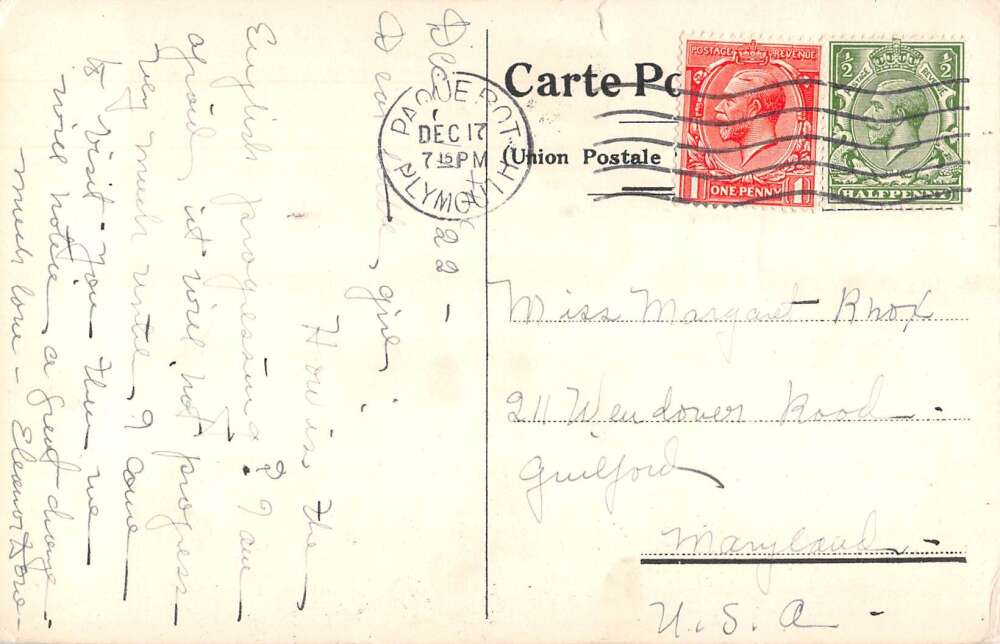 Dec. 22 -
Dear little girl,
How is the
English progressing? I am
afraid it will not progress
very much until I come
to visit you then we
will notice a great change -
much love - Eleanor
Carte Po
(Union Postale
PAQUEBOT
DEC 17
7 15 PM
PLYMOUTH
POSTAGE REVENUE
ONE PENNY
1 1
½ ½
HALFPENNY
Miss Margaret Knox
211 Wendover Road -
Guilford
Maryland -
U. S. A -